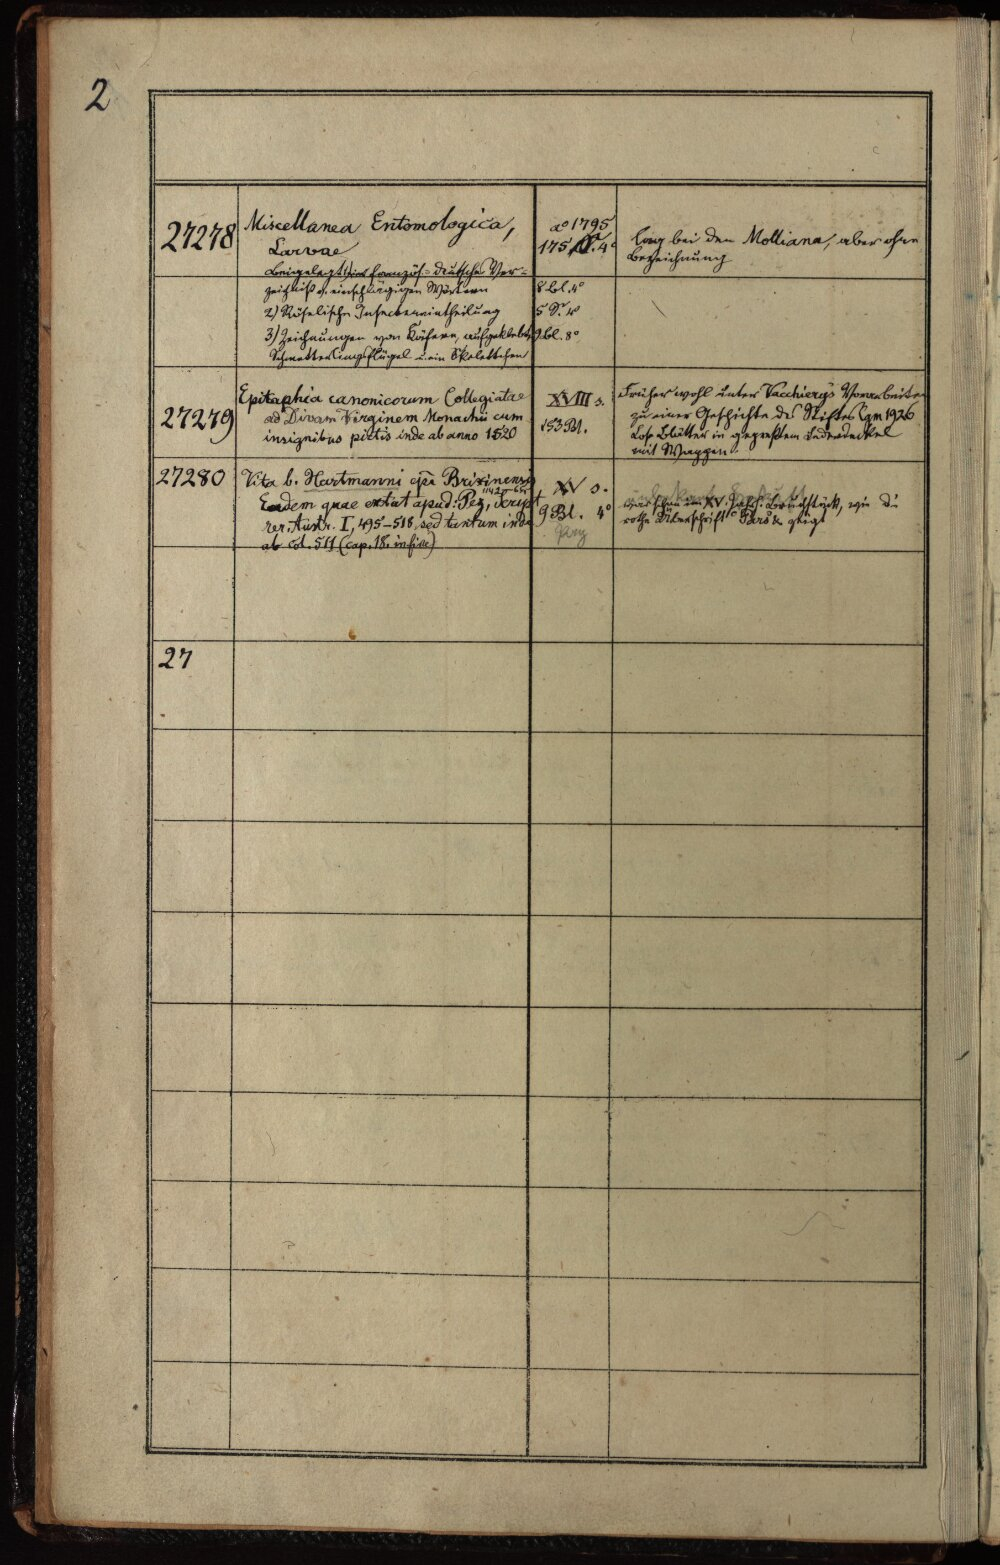 2
27278
Miscellanea Entomologica,
Larvae
Beigelegt: 1) ein französ.-deutsches Ver-
zeichniß v. einschlägigen Wörtern
2) Röselische Insecteneintheilung
3) Zeichnungen von Käfern, aufgeklebte
Schmetterlingsflügel u. ein Skelettchen
aº 1795
175 S. 4º
8 bl. 4º
5 S. 4º
9 bl. 8º
lag bei den Molliana, aber ohne
Bezeichnung
27279
Epitaphia canonicorum Collegiatae
ad Divam Virginem Monachii cum
insignibus pictis inde ab anno 1520
XVIII s.
153 Bl.
Früher wohl unter Vacchierys Vorarbeiten
zu einer Geschichte des Stiftes Cgm 1926
Lose Blätter in gepreßtem Lederdeckel
mit Wappen.
27280
Vita b. Hartmanni epi Brixinensis
1140–
Eadem quae extat apud: Pez, Script
rer. Austr. I, 495–518, sed tantum inde
ab col. 511 (cap. 18. in fine)
XV s.
9 Bl. 4º
Perg
im XV. Jahrh. Bruchstück, wie die
rothe zeigt
27